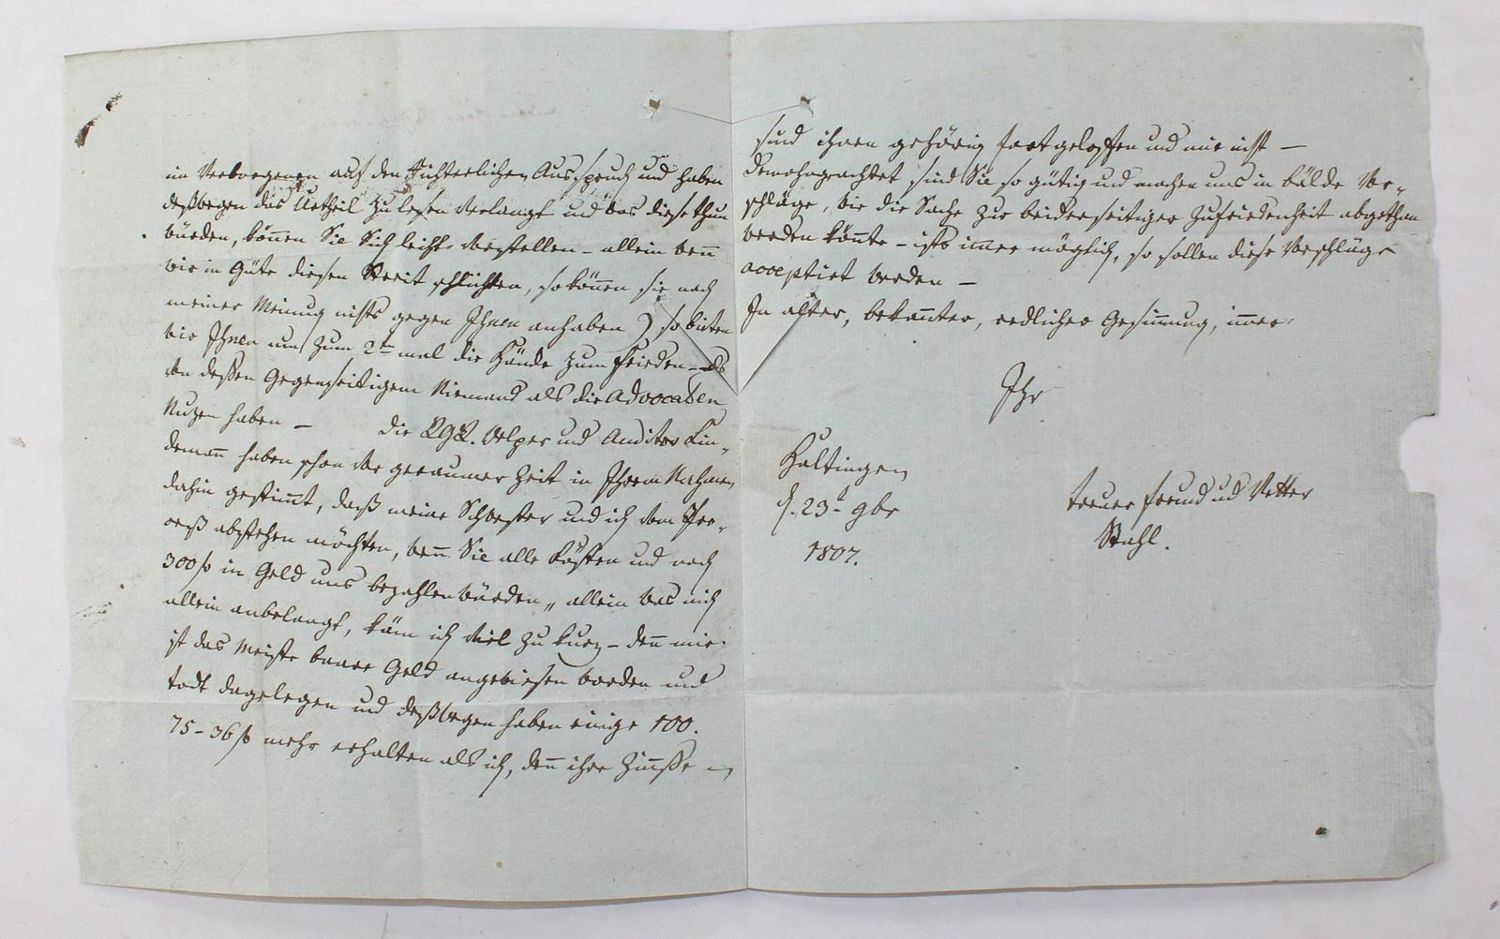 im Verborgenen auf den Richterlichen Ausspruch und haben
deßwegen das Urtheil zu lesen verlangt und was diese thun
würden, können Sie Sich leicht vorstellen – allein wenn
wir in Güte diesen Streit schlichten, so können sie nach
meiner Meinung nichts gegen Ihnen anhaben) so bieten
wir Ihnen nun zum 2ten mal die Hände zum Frieden – als
von deßen Gegenseitigem Niemand als die Advocaten
Nuzen haben – Die Welper und Auditor Lin-
demann haben schon vor geraumer Zeit in Ihrem Nahmen
dahin gestimmt, daß meine Schwester und ich vom Pro-
ceß abstehen möchten, wenn Sie alle Kösten und noch
300 f in Geld uns bezahlen würden, allein was mich
allein anbelangt, käm ich viel zu kurz – denn mir
ist das meiste baare Geld angewiesen worden und
todt dagelegen und deßwegen haben einige 100.
75 – 36 f mehr erhalten als ich, denn ihre Zinnße
sind ihnen gehörig fortgeloffen und mir nicht –
Demohngeachtet sind Sie so gütig und machen uns in bälde Vor-
schläge, wie die Sache zur beiderseitiger Zufriedenheit abgethan
werden könnte – ists immer möglich, so sollen diese Vorschläge
acceptirt werden –
In alter, bekannter, redlicher Gesinnung, immer
Ihr
Haltingen
d. 23t 9br
1807.
treuer Freund und Vetter
Stahl.